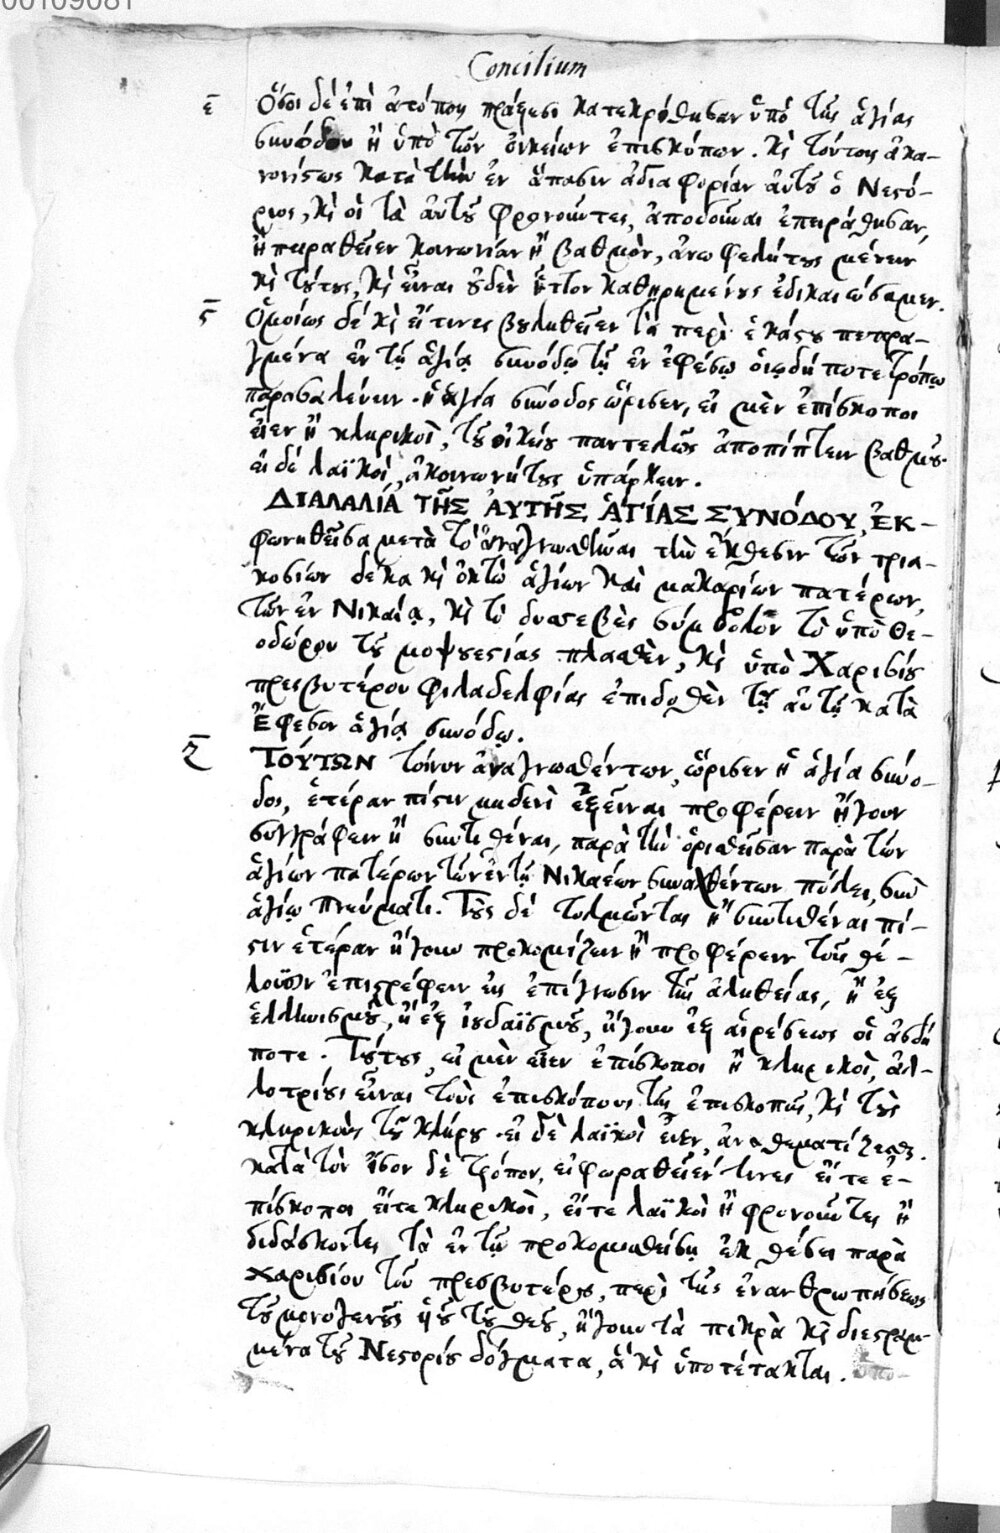 00109081
Concilium
ε Ὅσοι δὲ ἐπὶ ἀτόποις πράξεσι κατεκρίθησαν ὑπὸ τῆς ἁγίας
συνόδου ἢ ὑπὸ τῶν οἰκείων ἐπισκόπων. κὶ τούτοις ἀκα-
νονίστως κατὰ τὴν ἐν ἅπασιν ἀδιαφορίαν αὐτοῦ ὁ Νεστό-
ριος, κὶ οἱ τὰ αὐτοῦ φρονοῦντες, ἀποδοῦναι ἐπειράθησαν,
ἢ πειραθεῖεν κοινωνίαν ἢ βαθμὸν, ἀνωφελήτους μένειν
κὶ τούτους, κὶ εἶναι οὐδὲν ἧττον καθῃρημένους ἐδικαιώσαμεν.
ϛ Ὁμοίως δὲ κὶ εἴ τινες βουληθεῖεν τὰ περὶ ἑκάστου πεπρα-
γμένα ἐν τῇ ἁγίᾳ συνόδῳ τῇ ἐν ἐφέσῳ οἱῳδήποτε τρόπῳ
παρασαλεύειν. ἡ ἁγία σύνοδος ὥρισεν, εἰ μὲν ἐπίσκοποι
εἶεν ἢ κληρικοὶ, τοῦ οἰκείου παντελῶς ἀποπίπτειν βαθμοῦ.
εἰ δὲ λαϊκοί, ἀκοινωνήτους ὑπάρχειν.
ΔΙΑΛΑΛΙΆ ΤΗ͂Σ ἈΥΤΗ͂Σ ἉΓΊΑΣ ΣΥΝΌΔΟΥ, ἘΚ-
φωνηθεῖσα μετὰ τὸ ἀναγνωσθῆναι τὴν ἔκθεσιν τῶν τρια-
κοσίων δέκα κὶ ὀκτὼ ἁγίων καὶ μακαρίων πατέρων,
τῶν ἐν Νικαίᾳ, κὶ τὸ δυσσεβὲς σύμβολον τὸ ὑπὸ Θε-
οδώρου τοῦ μοψουεστίας πλασθὲν, κὶ ὑπὸ Χαρισίου
πρεσβυτέρου φιλαδελφίας ἐπιδοθὲν τῇ αὐτῇ κατὰ
Ἔφεσον ἁγίᾳ συνόδῳ.
ζ ΤΟΎΤΩΝ τοίνυν ἀναγνωσθέντων, ὥρισεν ἡ ἁγία σύνο-
δος, ἑτέραν πίστιν μηδενὶ ἐξεῖναι προφέρειν ἤγουν
συγγράφειν ἢ συντιθέναι, παρὰ τὴν ὁρισθεῖσαν παρὰ τῶν
ἁγίων πατέρων τῶν ἐν τῇ Νικαέων συναχθέντων πόλει, σὺν
ἁγίῳ πνεύματι. Τοὺς δὲ τολμῶντας ἢ συντιθέναι πί-
στιν ἑτέραν ἤγουν προκομίζειν ἢ προφέρειν τοῖς θέ-
λουσιν ἐπιστρέφειν εἰς ἐπίγνωσιν τῆς ἀληθείας, ἢ ἐξ
ἑλληνισμοῦ, ἢ ἐξ ἰουδαϊσμοῦ, ἤγουν ἐξ αἱρέσεως οἱασδή
ποτε. Τούτους, εἰ μὲν εἶεν ἐπίσκοποι ἢ κληρικοὶ, ἀλ-
λοτρίους εἶναι τοὺς ἐπισκόπους τῆς ἐπισκοπῆς, κὶ τοὺς
κληρικοὺς τοῦ κλήρου. εἰ δὲ λαϊκοὶ εἶεν, ἀναθεματίζεσθαι.
κατὰ τὸν ἴσον δὲ τρόπον, εἰ φωραθεῖέν τινες εἴτε ἐ-
πίσκοποι εἴτε κληρικοὶ, εἴτε λαϊκοὶ ἢ φρονοῦντες ἢ
διδάσκοντες τὰ ἐν τῇ προκομισθείσῃ ἐκθέσει παρὰ
Χαρισίου τοῦ πρεσβυτέρου, περὶ τῆς ἐνανθρωπήσεως
τοῦ μονογενοῦς ὑοῦ τοῦ θεοῦ, ἤγουν τὰ πικρὰ κὶ διεστραμ-
μένα τοῦ Νεστορίου δόγματα, ἃ κὶ ὑποτέτακται. ὑπο-